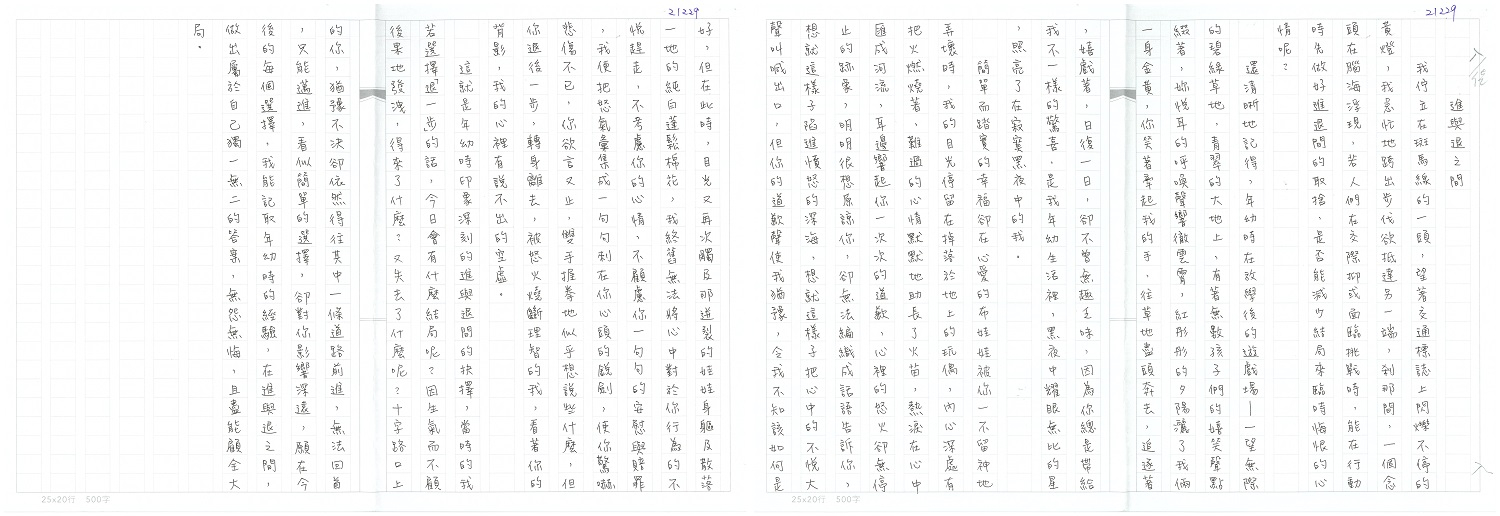 21229
進與退之間
我佇立在斑馬線的一頭，望著交通標誌上閃爍不停的
黃燈，我急忙地跨出步伐欲抵達另一端，剎那間，一個念
頭在腦海浮現，若人們在交際抑或面臨挑戰時，能在行動
時先做好進退間的取捨，是否能減少結局來臨時悔恨的心
情呢？
還清晰地記得，年幼時在放學後的遊戲場——一望無際
的碧綠草地，青翠的大地上，有著無數孩子們的嬉笑聲點
綴著，妳悅耳的呼喚聲響徹雲霄，紅彤彤的夕陽灑了我倆
一身金黃，你笑著牽起我的手，往草地盡頭奔去，追逐著
，嬉戲著，日復一日，卻不曾無趣乏味，因為你總是帶給
我不一樣的驚喜，是我年幼生活裡，黑夜中耀眼無比的星
，照亮了在寂寞黑夜中的我。
簡單而踏實的幸福卻在心愛的布娃娃被你一不留神地
弄壞時，我的目光停留在掉落於地上的玩偶，內心深處有
把火燃燒著，難過的心情默默地助長了火苗，熱淚在心中
匯成河流，耳邊響起你一次次的道歉，心裡的怒火卻無停
止的跡象，明明很想原諒你，卻無法編織成話語告訴你，
想就這樣子陷進憤怒的深海，想就這樣子把心中的不悅大
聲叫喊出口，但你的道歉聲使我猶豫，令我不知該如何是
21229
好，但在此時，目光又再次觸及那迸裂的娃娃身軀及散落
一地的純白蓬鬆棉花，我終舊無法將心中對於你行為的不
悅趕走，不考慮你的心情，不顧慮你一句句的安慰與賠罪
，我便把怒氣彙集成一句句刺在你心頭的銳劍，使你驚嚇
悲傷不已，你欲言又止，雙手握拳地似乎想說些什麼，但
你退後一步，轉身離去，被怒火燒斷理智的我，看著你的
背影，我的心裡有說不出的空虛。
這就是年幼時印象深刻的進與退間的抉擇，當時的我
若選擇「退」一步的話，今日會有什麼結局呢？因生氣而不顧
後果地發洩，得來了什麼？又失去了什麼呢？十字路口上
的你，猶豫不決卻依然得往其中一條道路前進，無法回首
，只能邁進，看似簡單的選擇，卻對你影響深遠，願在今
後的每個選擇，我能記取年幼時的經驗，在進與退之間，
做出屬於自己獨一無二的答案，無怨無悔，且盡能顧全大
局。
25x20行 500字
25x20行 500字